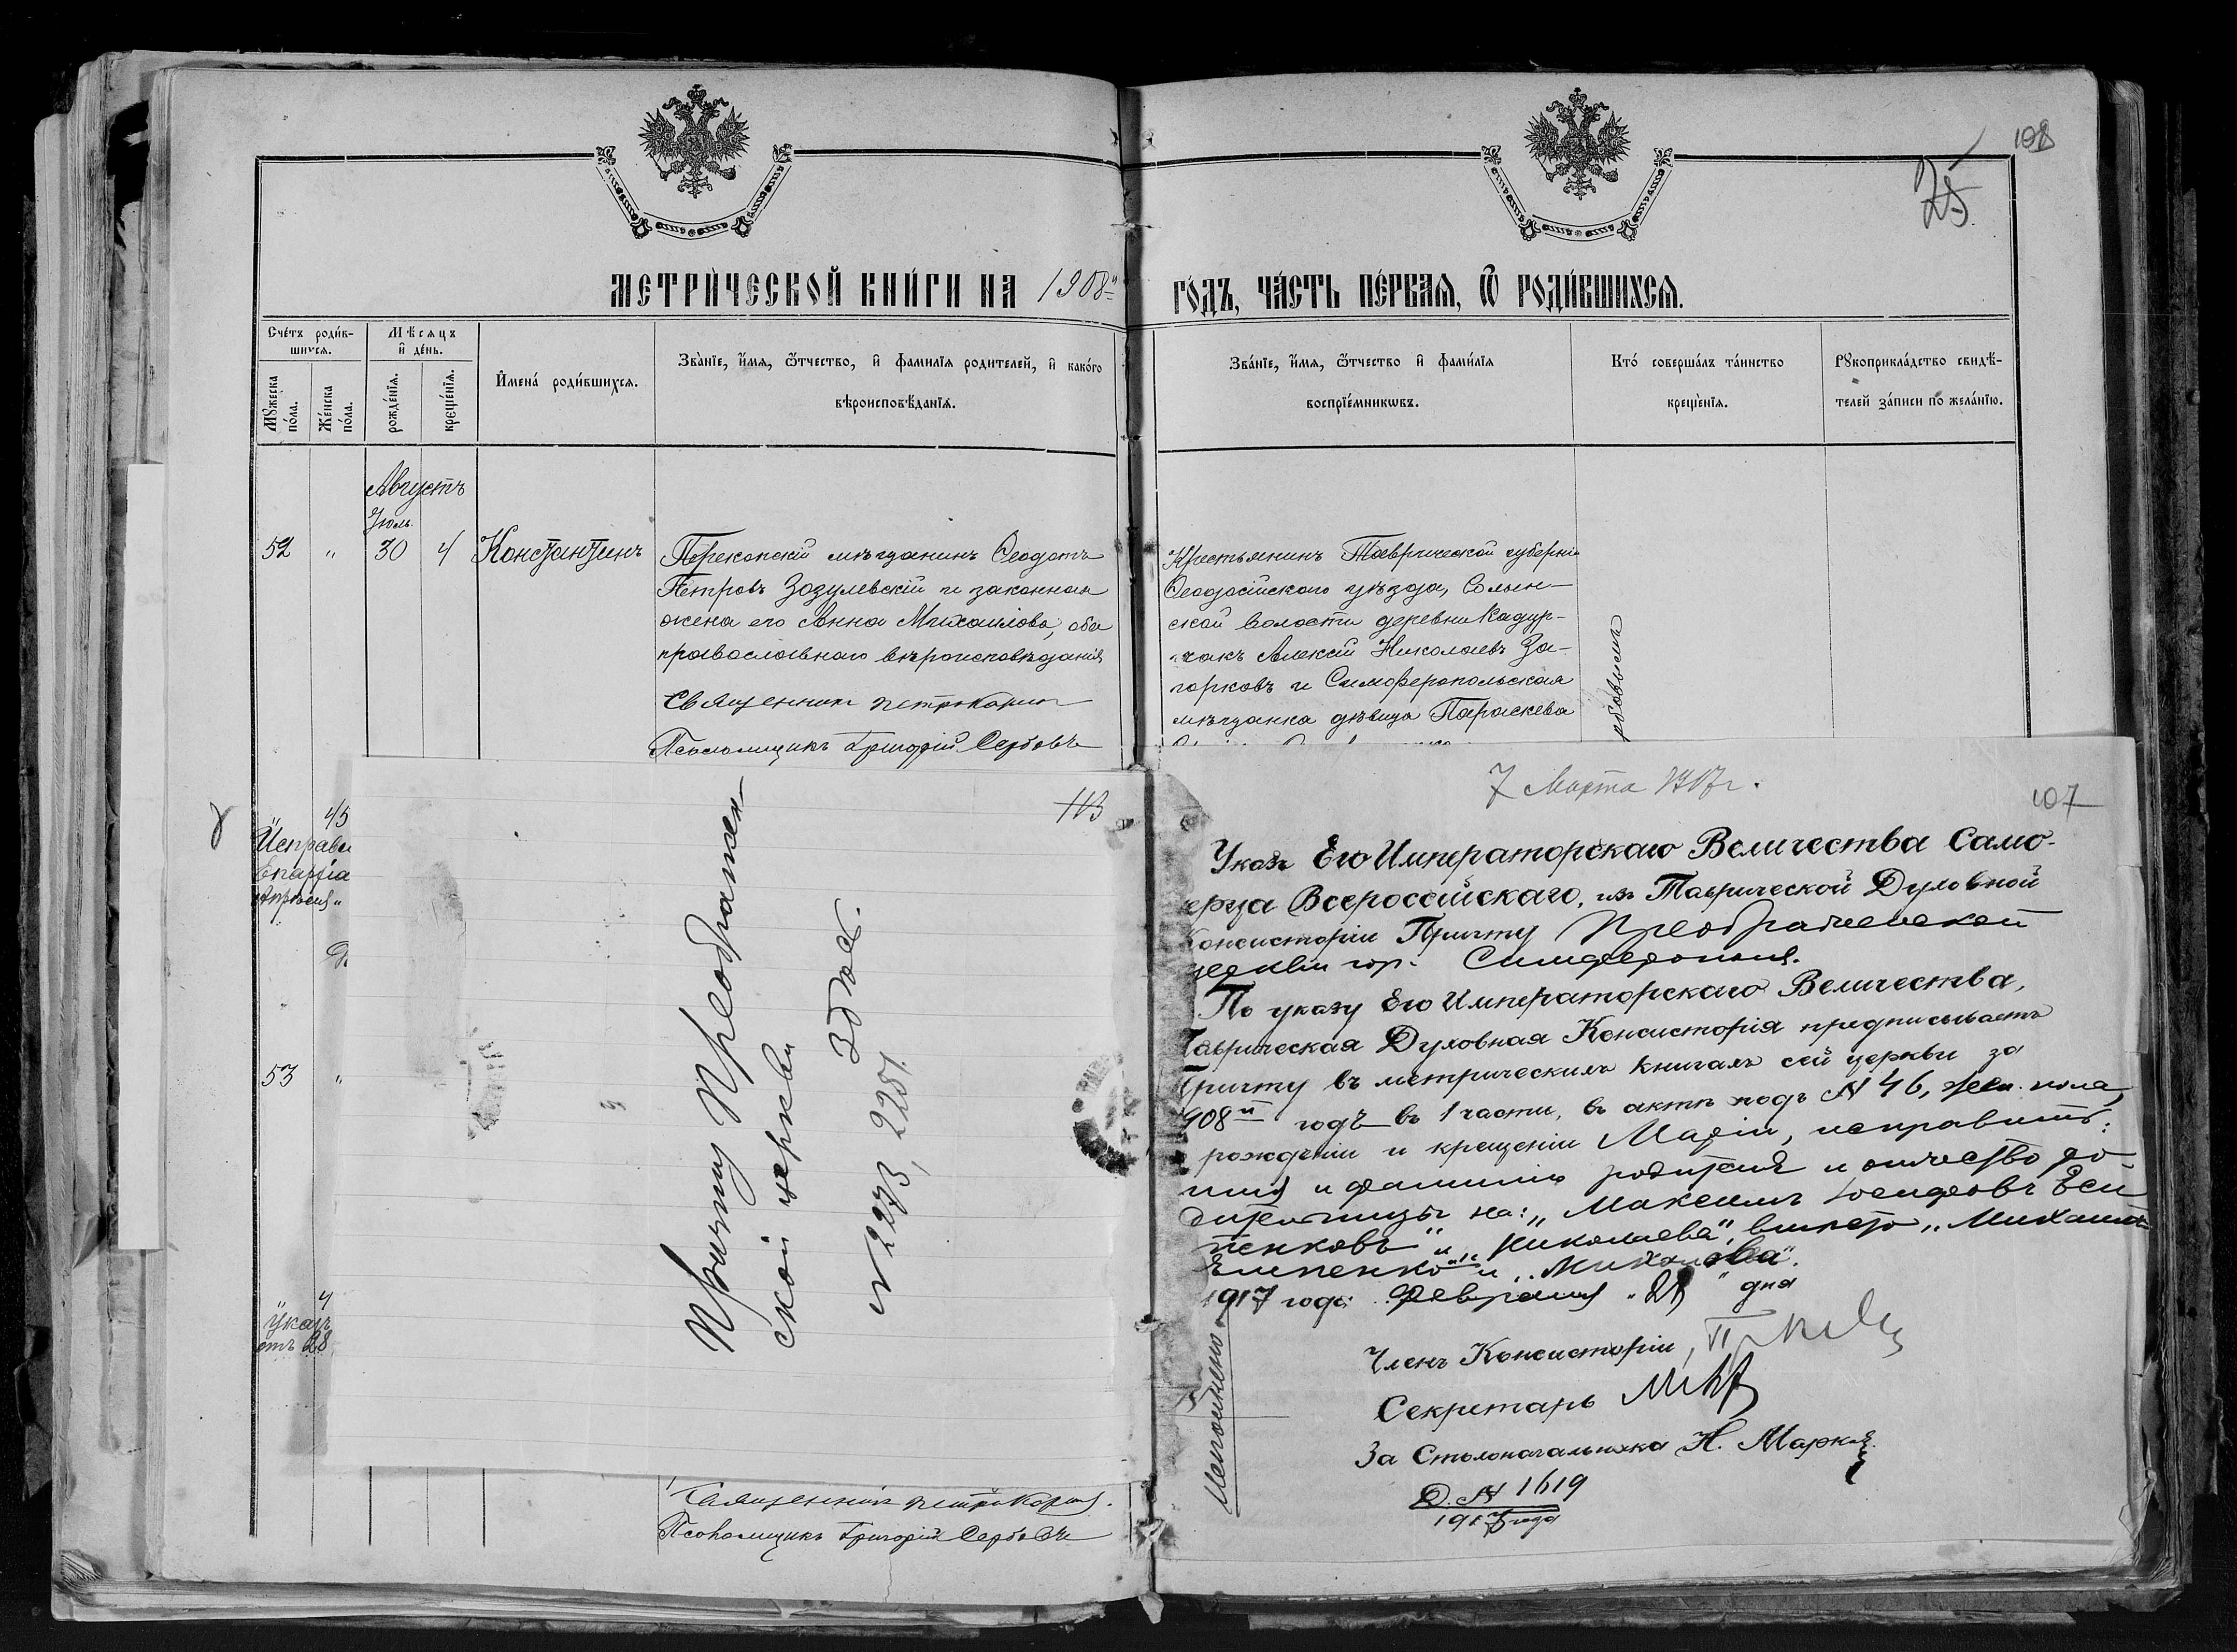 108
25
МЕТРИЧЕСКОЙ КНИГИ НА 1908й ГОДЪ, ЧАСТЬ ПЕРВАЯ, Ѿ РОДИВШИХСЯ.
Счетъ родившихся.
Мужеска пола.
Женска пола.
Мѣсяцъ и день.
рожденія.
крещенія.
Имена родившихся.
Званіе, имя, ѿтчество, и фамилія родителей, и какого
вѣроисповѣданія.
Званіе, имя, ѿтчество и фамилія
воспріемниковъ.
Кто совершалъ таинство
крещенія.
Рукоприкладство свидѣ-
телей записи по желанію.
Августъ
Іюль
52 " 30 4 Константинъ
Перекопскій мѣщанинъ Ѳеодотъ
Петровъ Зозулевскій и законная
жена его Анна Михаилова, оба
православнаго вѣроисповѣданія
Священникъ
Псаломщикъ Григорій Сербовъ
Крестьянинъ Таврической губерніи
Ѳеодосійскаго уѣзда, Салын-
ской волости деревни Кадыр-
чакъ Алексій Николаевъ За-
горковъ и Симферопольская
мѣщанка дѣвица Параскева
45
Исправл
Епархіа
53 "
Указъ
отъ 28
113
Причту Преображен-
ской церкви
Здѣсь.
N 2273, 2281.
7 Марта 1917 г.
107
Указъ Его Императорскаго Величества Само-
ержца Всероссійскаго, изъ Таврической Духовной
Консисторіи Причту Преображенской
церкви гор. Симферополя.
По указу Его Императорскаго Величества,
Таврическая Духовная Консисторія предписываетъ
Причту въ метрическихъ книгахъ сей церкви за
908й годъ въ 1 части, въ актѣ подъ N 46, жен. пола,
рожденіи и крещеніи Маріи, исправить:
имя и фамилію родителя и отчество ро-
дительницы на: „Максимъ Іосифовъ Еси
пенковъ" и „Николаева", вмѣсто „Михаилъ
Есипенко" и „Михаилова".
1917 года Февраля „28" дня
Членъ Консисторіи,
Секретарь
За Столоначальника Н. Марк
Д. N 1619
1917 года
Исполнено
Священникъ
Псаломщикъ Григорій Сербовъ